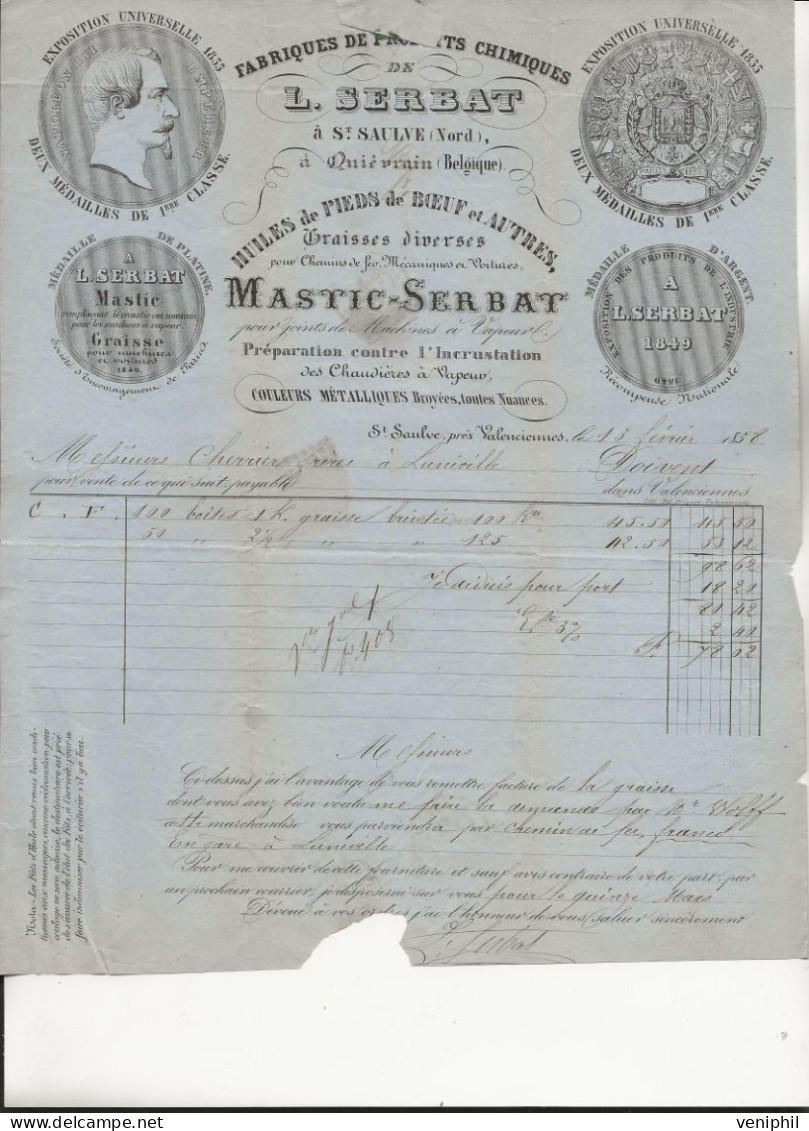 EXPOSITION UNIVERSELLE 1855
NAPOLÉON III EMPEREUR
DEUX MÉDAILLES DE 1ERE CLASSE.
FABRIQUES DE PRODUITS CHIMIQUES
DE
L. SERBAT
à St. SAULVE (Nord),
à Quiévrain (Belgique)
EXPOSITION UNIVERSELLE 1855
DEUX MÉDAILLES DE 1ERE CLASSE.
HUILES de PIEDS de BŒUF et AUTRES,
Graisses diverses
pour Chemins de fer, Mécaniques et Voitures,
MASTIC-SERBAT
pour joints de Machines à Vapeur &
Préparation contre l'Incrustation
des Chaudières à Vapeur,
COULEURS MÉTALLIQUES Broyées, toutes Nuances.
MÉDAILLE DE PLATINE.
A
L. SERBAT
Mastic
remplaçant le mastic au minium
pour les machines à vapeur.
Graisse
pour machines
et voitures
1849.
Société d'Encouragement de Paris
MÉDAILLE D'ARGENT.
EXPOSITION DES PRODUITS DE L'INDUSTRIE
A
L. SERBAT
1849
Récompense Nationale
St. Saulve, près Valenciennes, le 13 février 1858
Messieurs Cherrier frères à Lunéville Doivent
pour vente de ce qui suit, payable dans Valenciennes.
C. F. 100 boîtes 1 K. graisse 100 Kos 45.50 45 50
50 " 2 1/2 " " " 125 42.50 53 12
98 62
Je déduis pour port 18 20
80 42
Ete 3% 2 40
F. 78 02
Messieurs
Ci dessus j'ai l'avantage de vous remettre facture de la graisse
dont vous avez bien voulu me faire la demande par Mr Wolff
cette marchandise vous parviendra par chemin de fer, franco
En gare à Lunéville
Pour me couvrir de cette fourniture et sauf avis contraire de votre part, par
un prochain courrier, je disposerai sur vous pour le quinze Mars
Dévoué à vos ordres j'ai l'honneur de vous saluer sincèrement
L. Serbat
Nota.- Les Fûts d'Huile étant remis bien condi-
tionnés aux messagers, aucune réclamation pour
coulage ne sera admise, le destinataire est prié
de s'assurer de l'état des Fûts, à l'arrivée, pour se
faire indemniser par le voiturier s'il y a lieu.
www.delcampe.net
veniphil